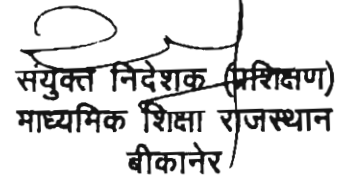 संयुक्त निदेशक (प्रशिक्षण)
माध्यमिक शिक्षा राजस्थान
बीकानेर